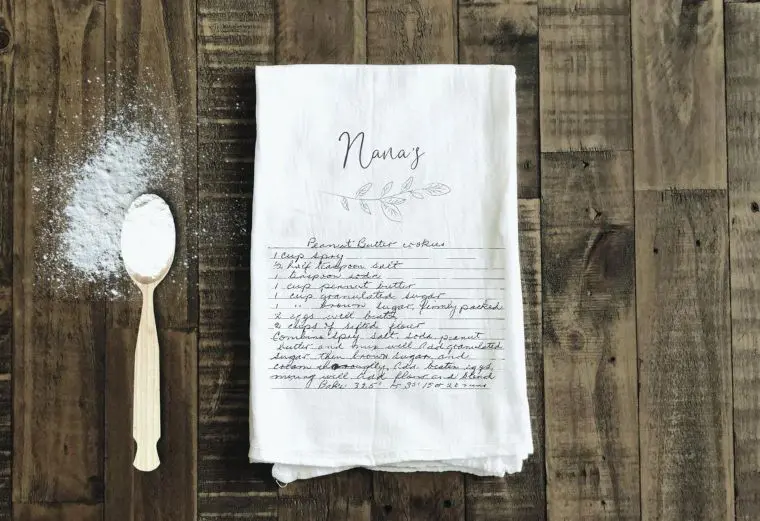 Nana's
Peanut Butter cookies
1 cup spry
½ half teaspoon salt
1 teaspoon soda
1 cup peanut butter
1 cup granulated sugar
1 " brown sugar, firmly packed
2 eggs well beaten
2 cups of sifted flour
Combine spry, salt, soda, peanut
butter and mix well Add granulated
sugar then brown sugar, and
cream thoroughly, Add beaten eggs,
mixing well Add flour and blend
Bake 325° or 35° 15 or 20 min